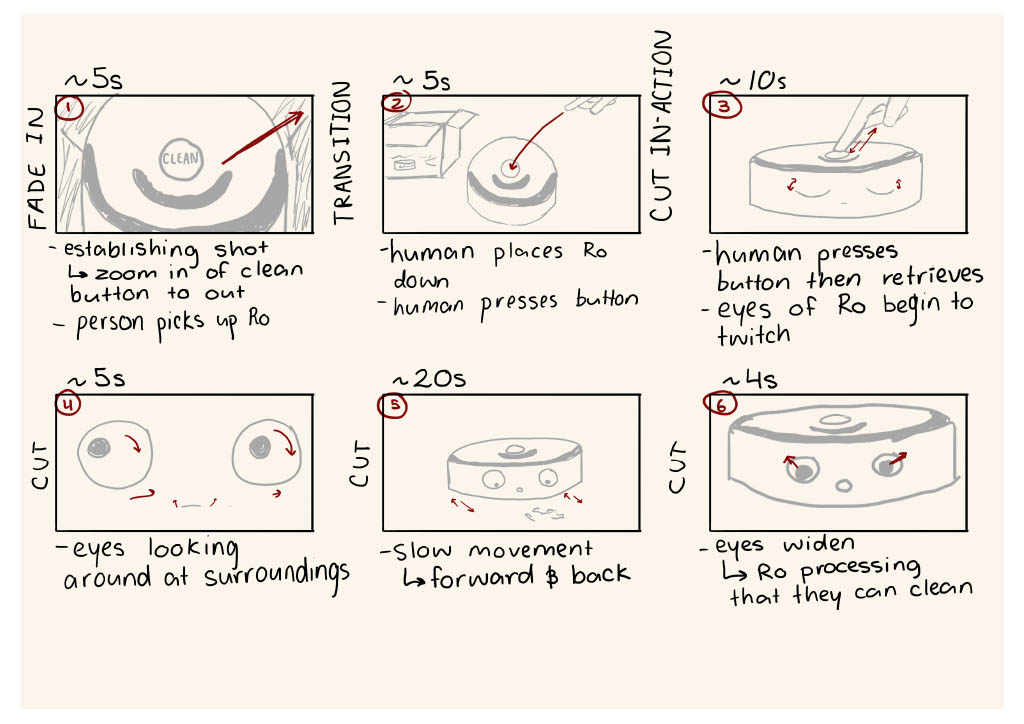 ~5s
FADE IN
1
CLEAN
- establishing shot
↳ zoom in of clean
button to out
- person picks up Ro
~5s
TRANSITION
2
- human places Ro
down
- human presses button
~10s
CUT IN-ACTION
3
- human presses
button then retrieves
- eyes of Ro begin to
twitch
~5s
CUT
4
- eyes looking
around at surroundings
~20s
CUT
5
- slow movement
↳ forward & back
~4s
CUT
6
- eyes widen
↳ Ro processing
that they can clean